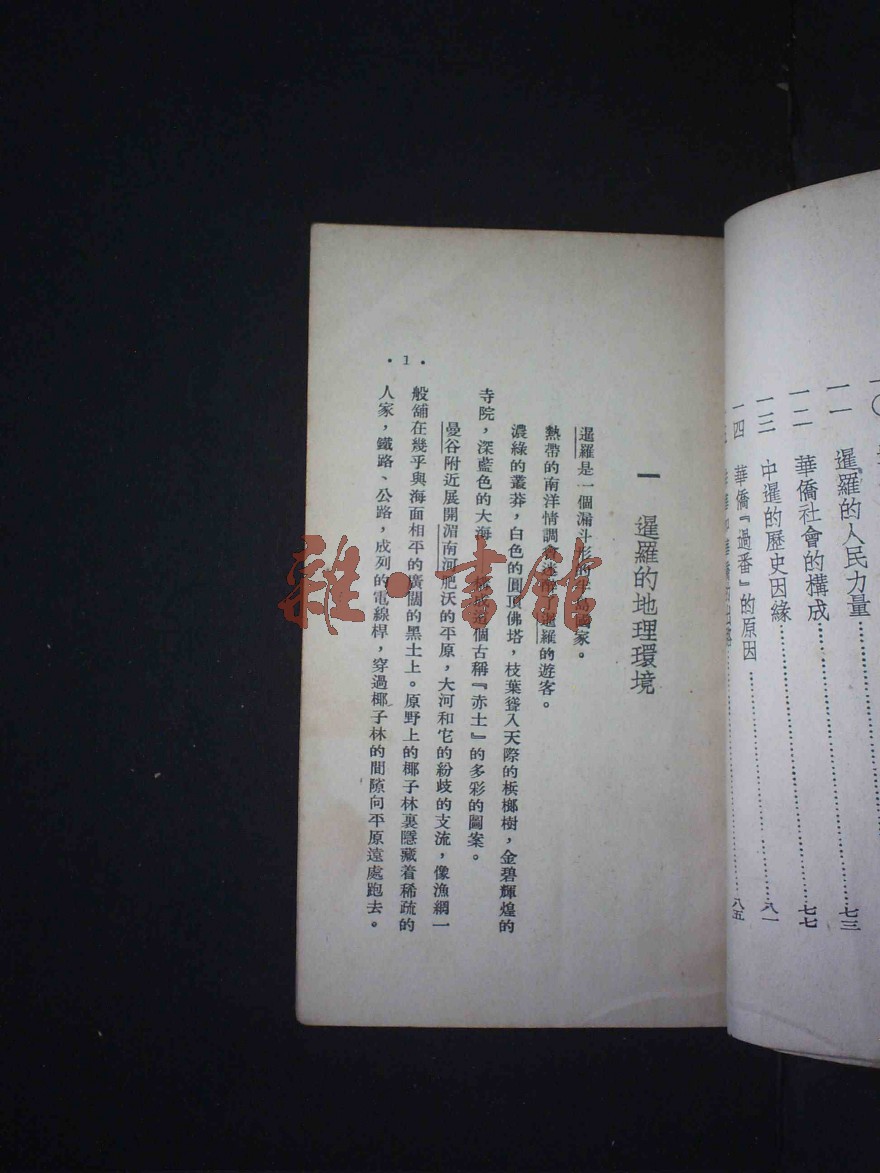 一〇
一一 暹羅的人民力量 七三
一二 華僑社會的構成 七七
一三 中暹的歷史因緣 八一
一四 華僑『過番』的原因 八五
一 暹羅的地理環境
暹羅是一個漏斗形的半島國家。
熱帶的南洋情調 了暹羅的遊客。
濃綠的叢莽,白色的圓頂佛塔,枝葉聳入天際的檳榔樹,金碧輝煌的
寺院,深藍色的大海 個古稱『赤土』的多彩的圖案。
曼谷附近展開湄南河肥沃的平原,大河和它的紛歧的支流,像漁網一
般舖在幾乎與海面相平的廣闊的黑土上。原野上的椰子林裏隱藏着稀疏的
人家,鐵路、公路,成列的電線桿,穿過椰子林的間隙向平原遠處跑去。
• 1 •
雜·書館